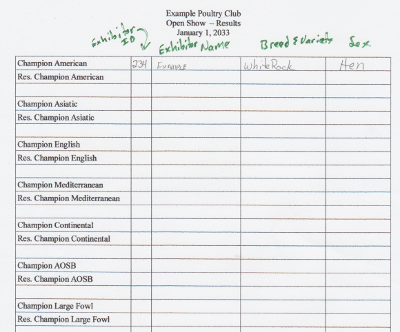 Example Poultry Club
Open Show ~ Results
January 1, 2033
Exhibitor ID Exhibitor Name Breed & Variety Sex
Champion American 234 White Rock Hen
Res. Champion American
Champion Asiatic
Res. Champion Asiatic
Champion English
Res. Champion English
Champion Mediterranean
Res. Champion Mediterranean
Champion Continental
Res. Champion Continental
Champion AOSB
Res. Champion AOSB
Champion Large Fowl
Res. Champion Large Fowl